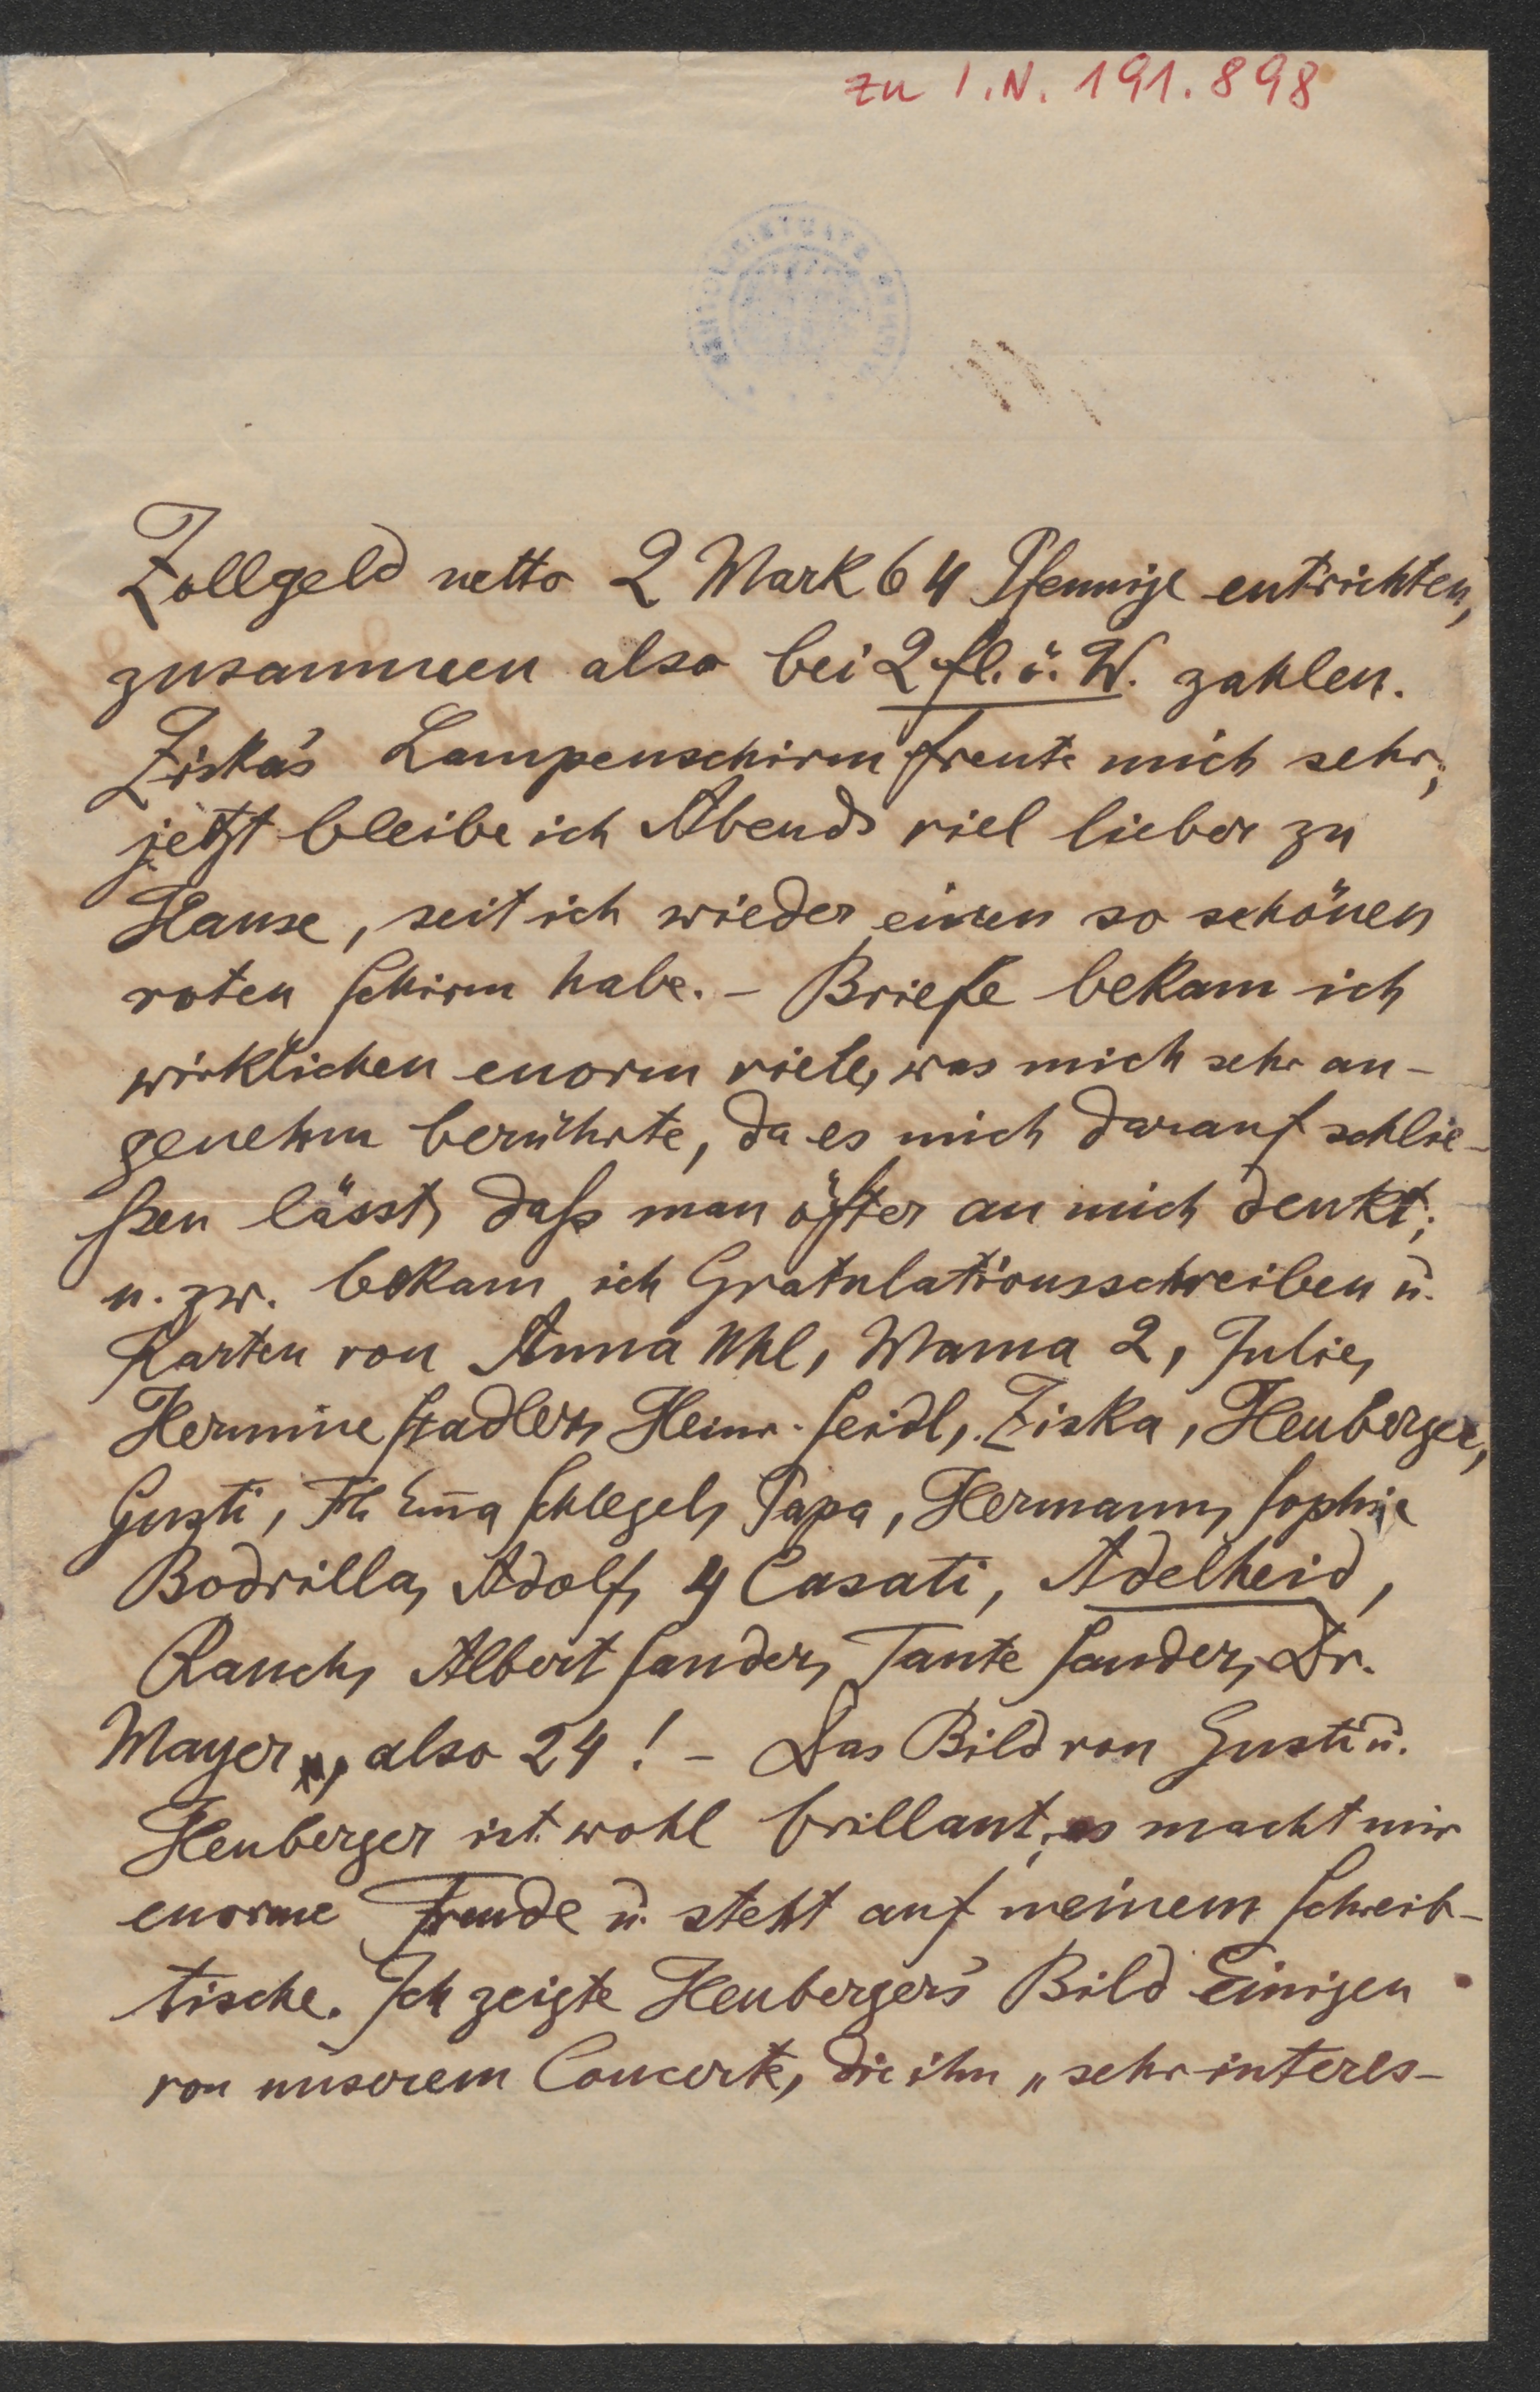 zu I.N. 191.898
Zollgeld netto 2 Mark 64 Pfennige entrichten,
zusammen also bei 2 fl. ö. W. zahlen.
Ziska's Lampenschirm freute mich sehr;
jetzt bleibe ich Abends viel lieber zu
Hause, seit ich wieder einen so schönen
roten Schirm habe. - Briefe bekam ich
wirklichen enorm viele, was mich sehr an-
genehm berührte, da es mich darauf schlie-
ßen lässt, daß man öfter an mich denkt;
u. zw. bekam ich Gratulationsschreiben u.
Karten von Anna Uhl, Mama 2, Julie,
Hermine Stadler, Heinr. Seidl, Ziska, Heuberger,
Gusti, Frl. Em̄a Schlegel, Papa, Hermann, Sophie
Bodrilla, Adolf, 4 Casati, Adelheid,
Rauch, Albert Sander, Tante Sander, Dr.
Mayer, also 24! - Das Bild von Gusti u.
Heuberger ist wohl brillant; es macht mir
enorme Freude u. steht auf meinem Schreib-
tische. Ich zeigte Heuberger's Bild Einigen
von unserem Concerte, die ihn „sehr interes-